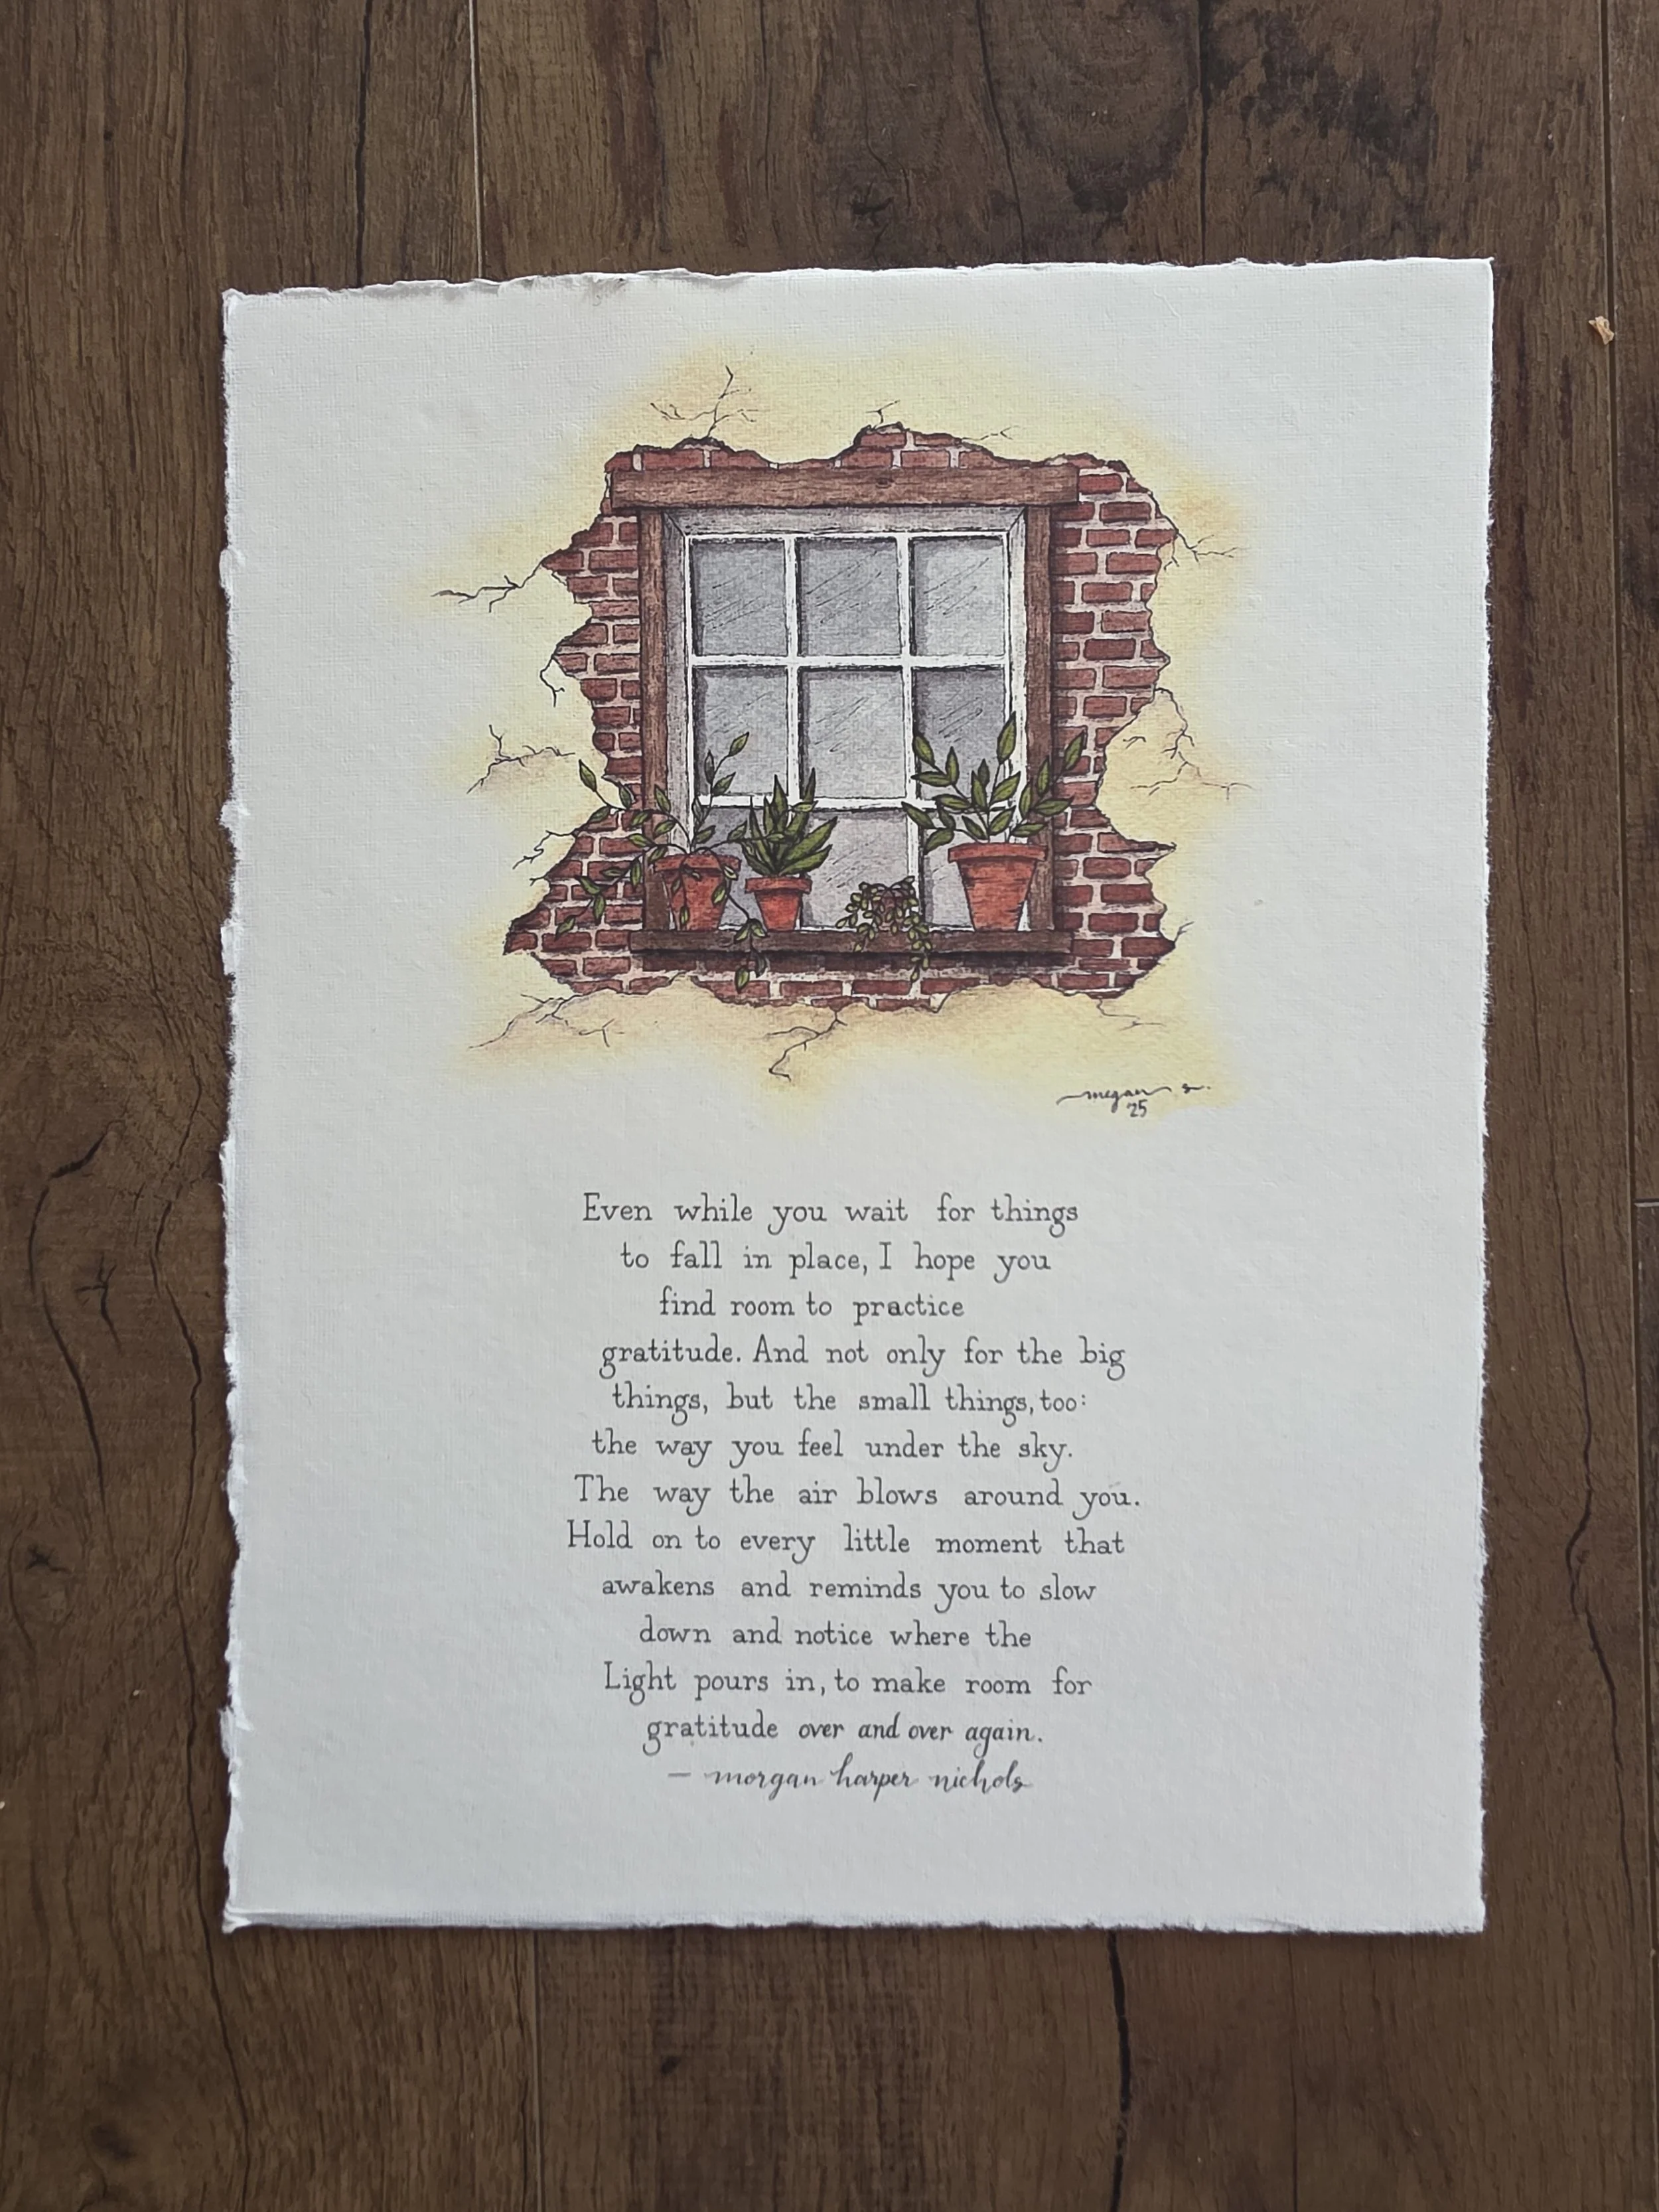 megan s.
'25
Even while you wait for things
to fall in place, I hope you
find room to practice
gratitude. And not only for the big
things, but the small things, too:
the way you feel under the sky.
The way the air blows around you.
Hold on to every little moment that
awakens and reminds you to slow
down and notice where the
Light pours in, to make room for
gratitude over and over again.
— morgan harper nichols